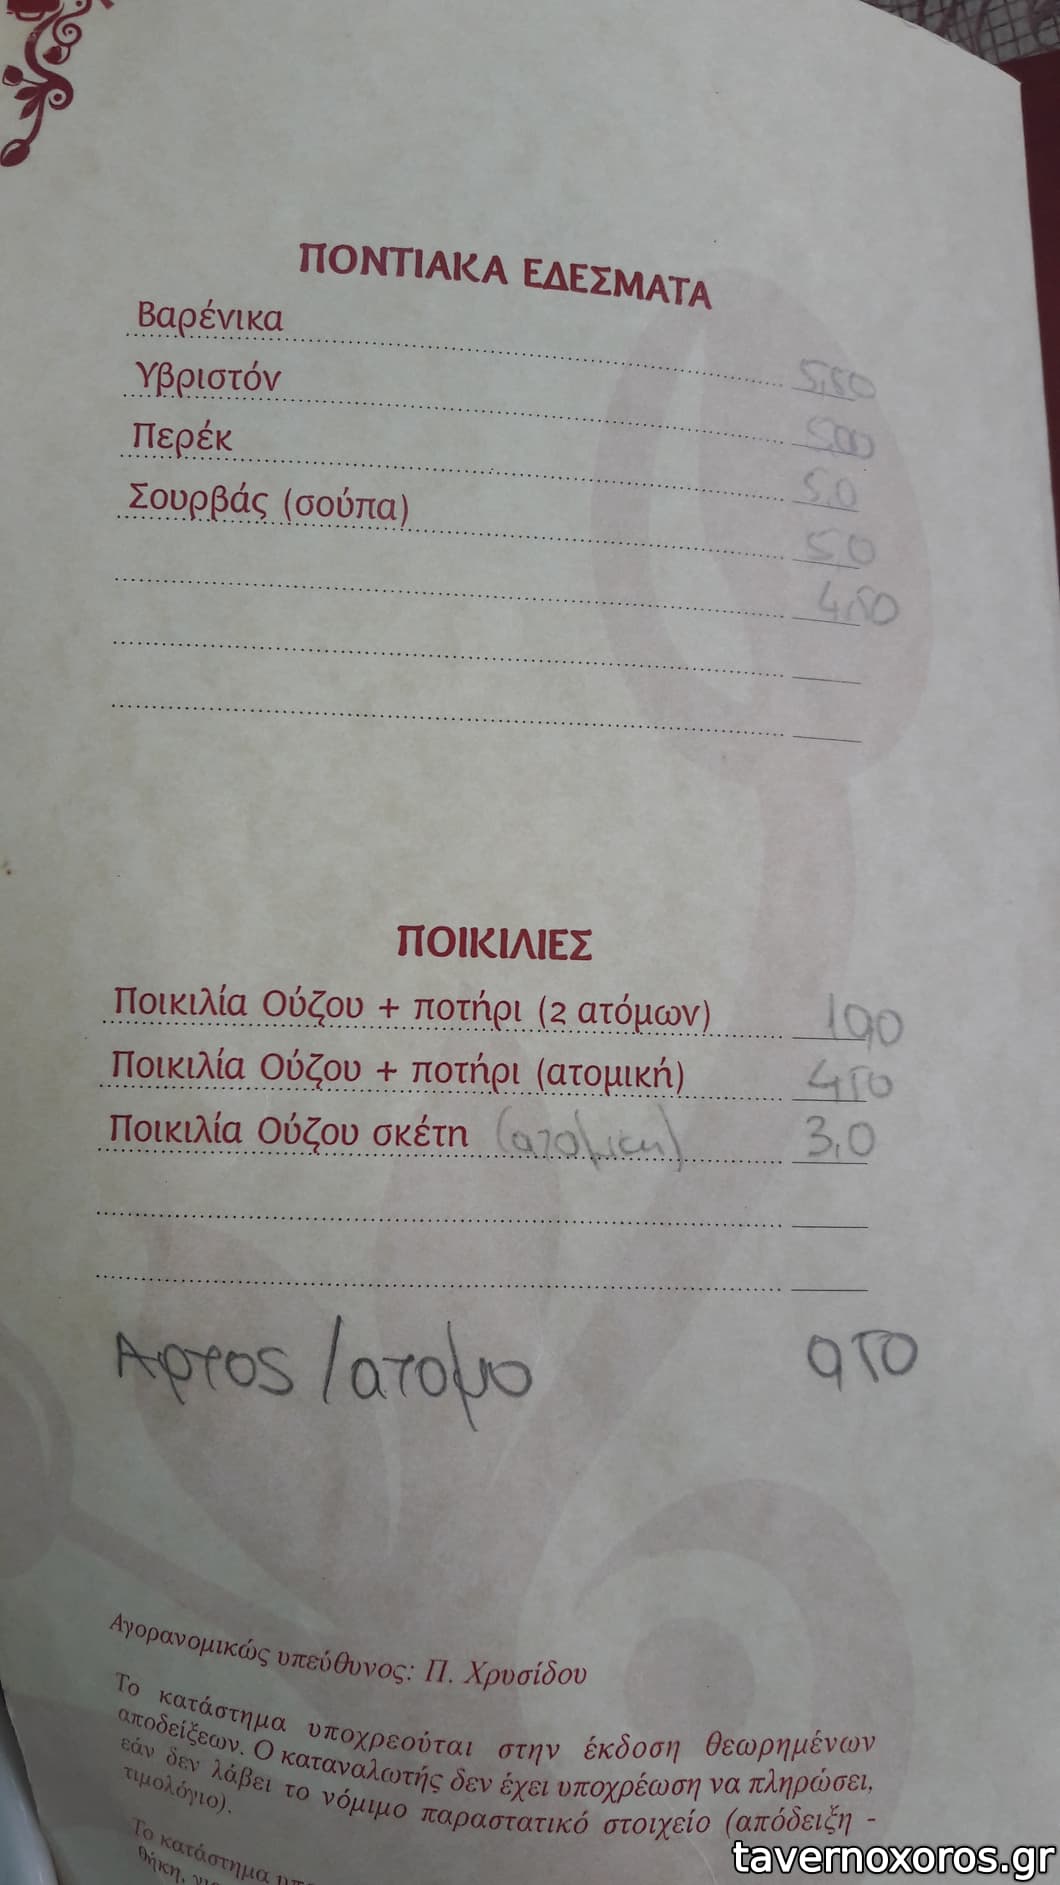 ΠΟΝΤΙΑΚΑ ΕΔΕΣΜΑΤΑ
Βαρένικα 5,50
Υβριστόν 5,00
Περέκ 5,0
Σουρβάς (σούπα) 5,0
4,50
ΠΟΙΚΙΛΙΕΣ
Ποικιλία Ούζου + ποτήρι (2 ατόμων) 10,0
Ποικιλία Ούζου + ποτήρι (ατομική) 4,50
Ποικιλία Ούζου σκέτη (ατομικη) 3,0
Αρτος / ατομο 0,50
Αγορανομικώς υπεύθυνος: Π. Χρυσίδου
Το κατάστημα υποχρεούται στην έκδοση θεωρημένων
αποδείξεων. Ο καταναλωτής δεν έχει υποχρέωση να πληρώσει,
εάν δεν λάβει το νόμιμο παραστατικό στοιχείο (απόδειξη -
τιμολόγιο).
Το κατάστημα
θήκη,
tavernoxoros.gr